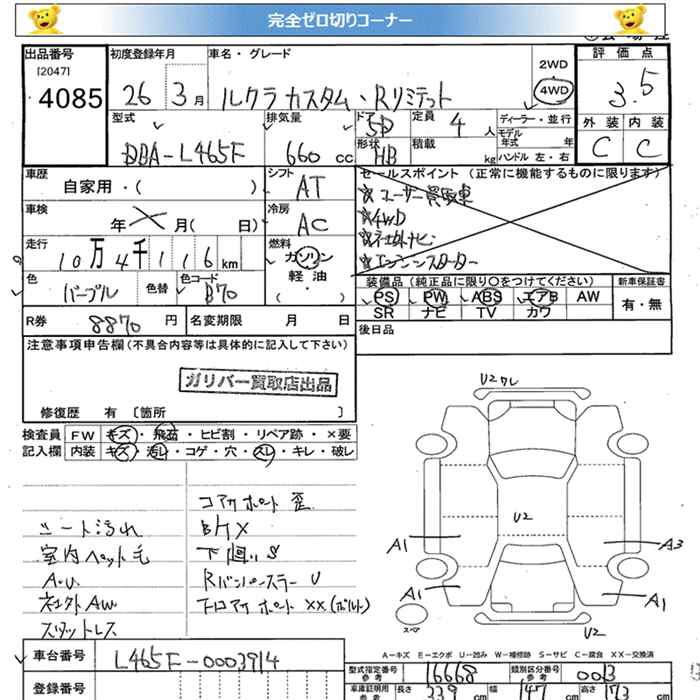 完全ゼロ切りコーナー
出品番号 初度登録年月 車名・グレード 2WD 評価点
[2047]
4085 26 3月 ルクラカスタム・Rリミテッド 4WD 3.5
型式 排気量 ドア 5D 定員 4人 ディーラー・並行 外装 内装
DBA-L465F 660cc 形状 HB 積載 kg モデル年式 年 ハンドル 左・右 C C
車歴 シフト セールスポイント (正常に機能するものに限ります)
自家用・( ) AT ※ユーザー買取車
車検 冷房 ※4WD
年 月( 日) AC ※社外ナビ
走行 燃料 ※エンジンスターター
10万4千116km ガソリン
色 色替 色コード 軽油 装備品 (純正品に限り○をつけてください) 新車保証書
パープル B70 (・) PS PW ABS エアB AW 有・無
SR ナビ TV カワ
R券 8870円 名変期限 月 日 後日品
注意事項申告欄 (不具合内容等は具体的に記入して下さい)
ガリバー買取店出品
修復歴 有 〔箇所 〕
検査員 FW キズ・飛石・ヒビ割・リペア跡・×要
記入欄 内装 キズ・汚レ・コゲ・穴・スレ・キレ・破レ
コアサポート歪
シート汚れ BけX
室内ペット毛 下廻りS
A.U. RバンパーステーU
社外AW
スタッドレス
U2ワレ
U2
A1
A3
A1
A1
スペア
U2
A-キズ E-エクボ U-凹み W-補修跡 S-サビ C-腐食 XX-交換済
車台番号 L465F-0003914
型式指定番号 参考 16668 類別区分番号 参考 0013
登録番号
車庫証明用 参考 長さ 339cm 幅 147cm 高さ 173cm